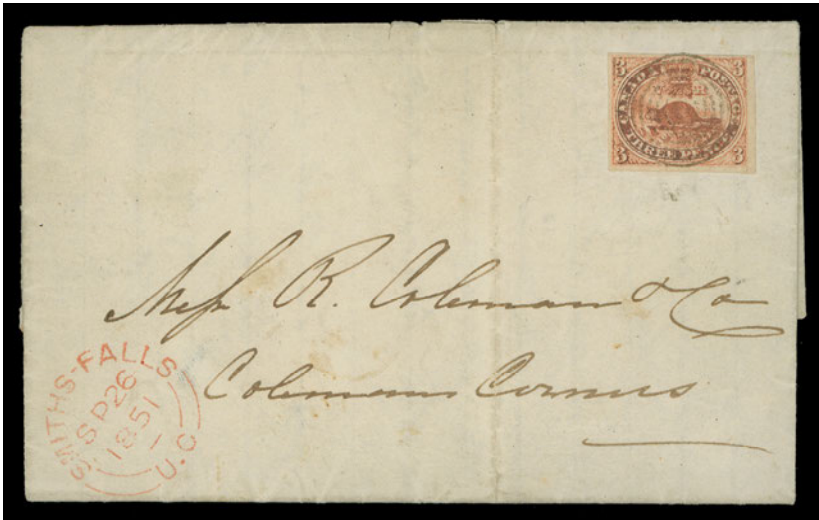 3 CANADA POSTAGE 3
3 THREE PENCE 3
Mess R. Coleman & Co
Colemans Corners
SMITHS-FALLS
SP 26
1851
U.C